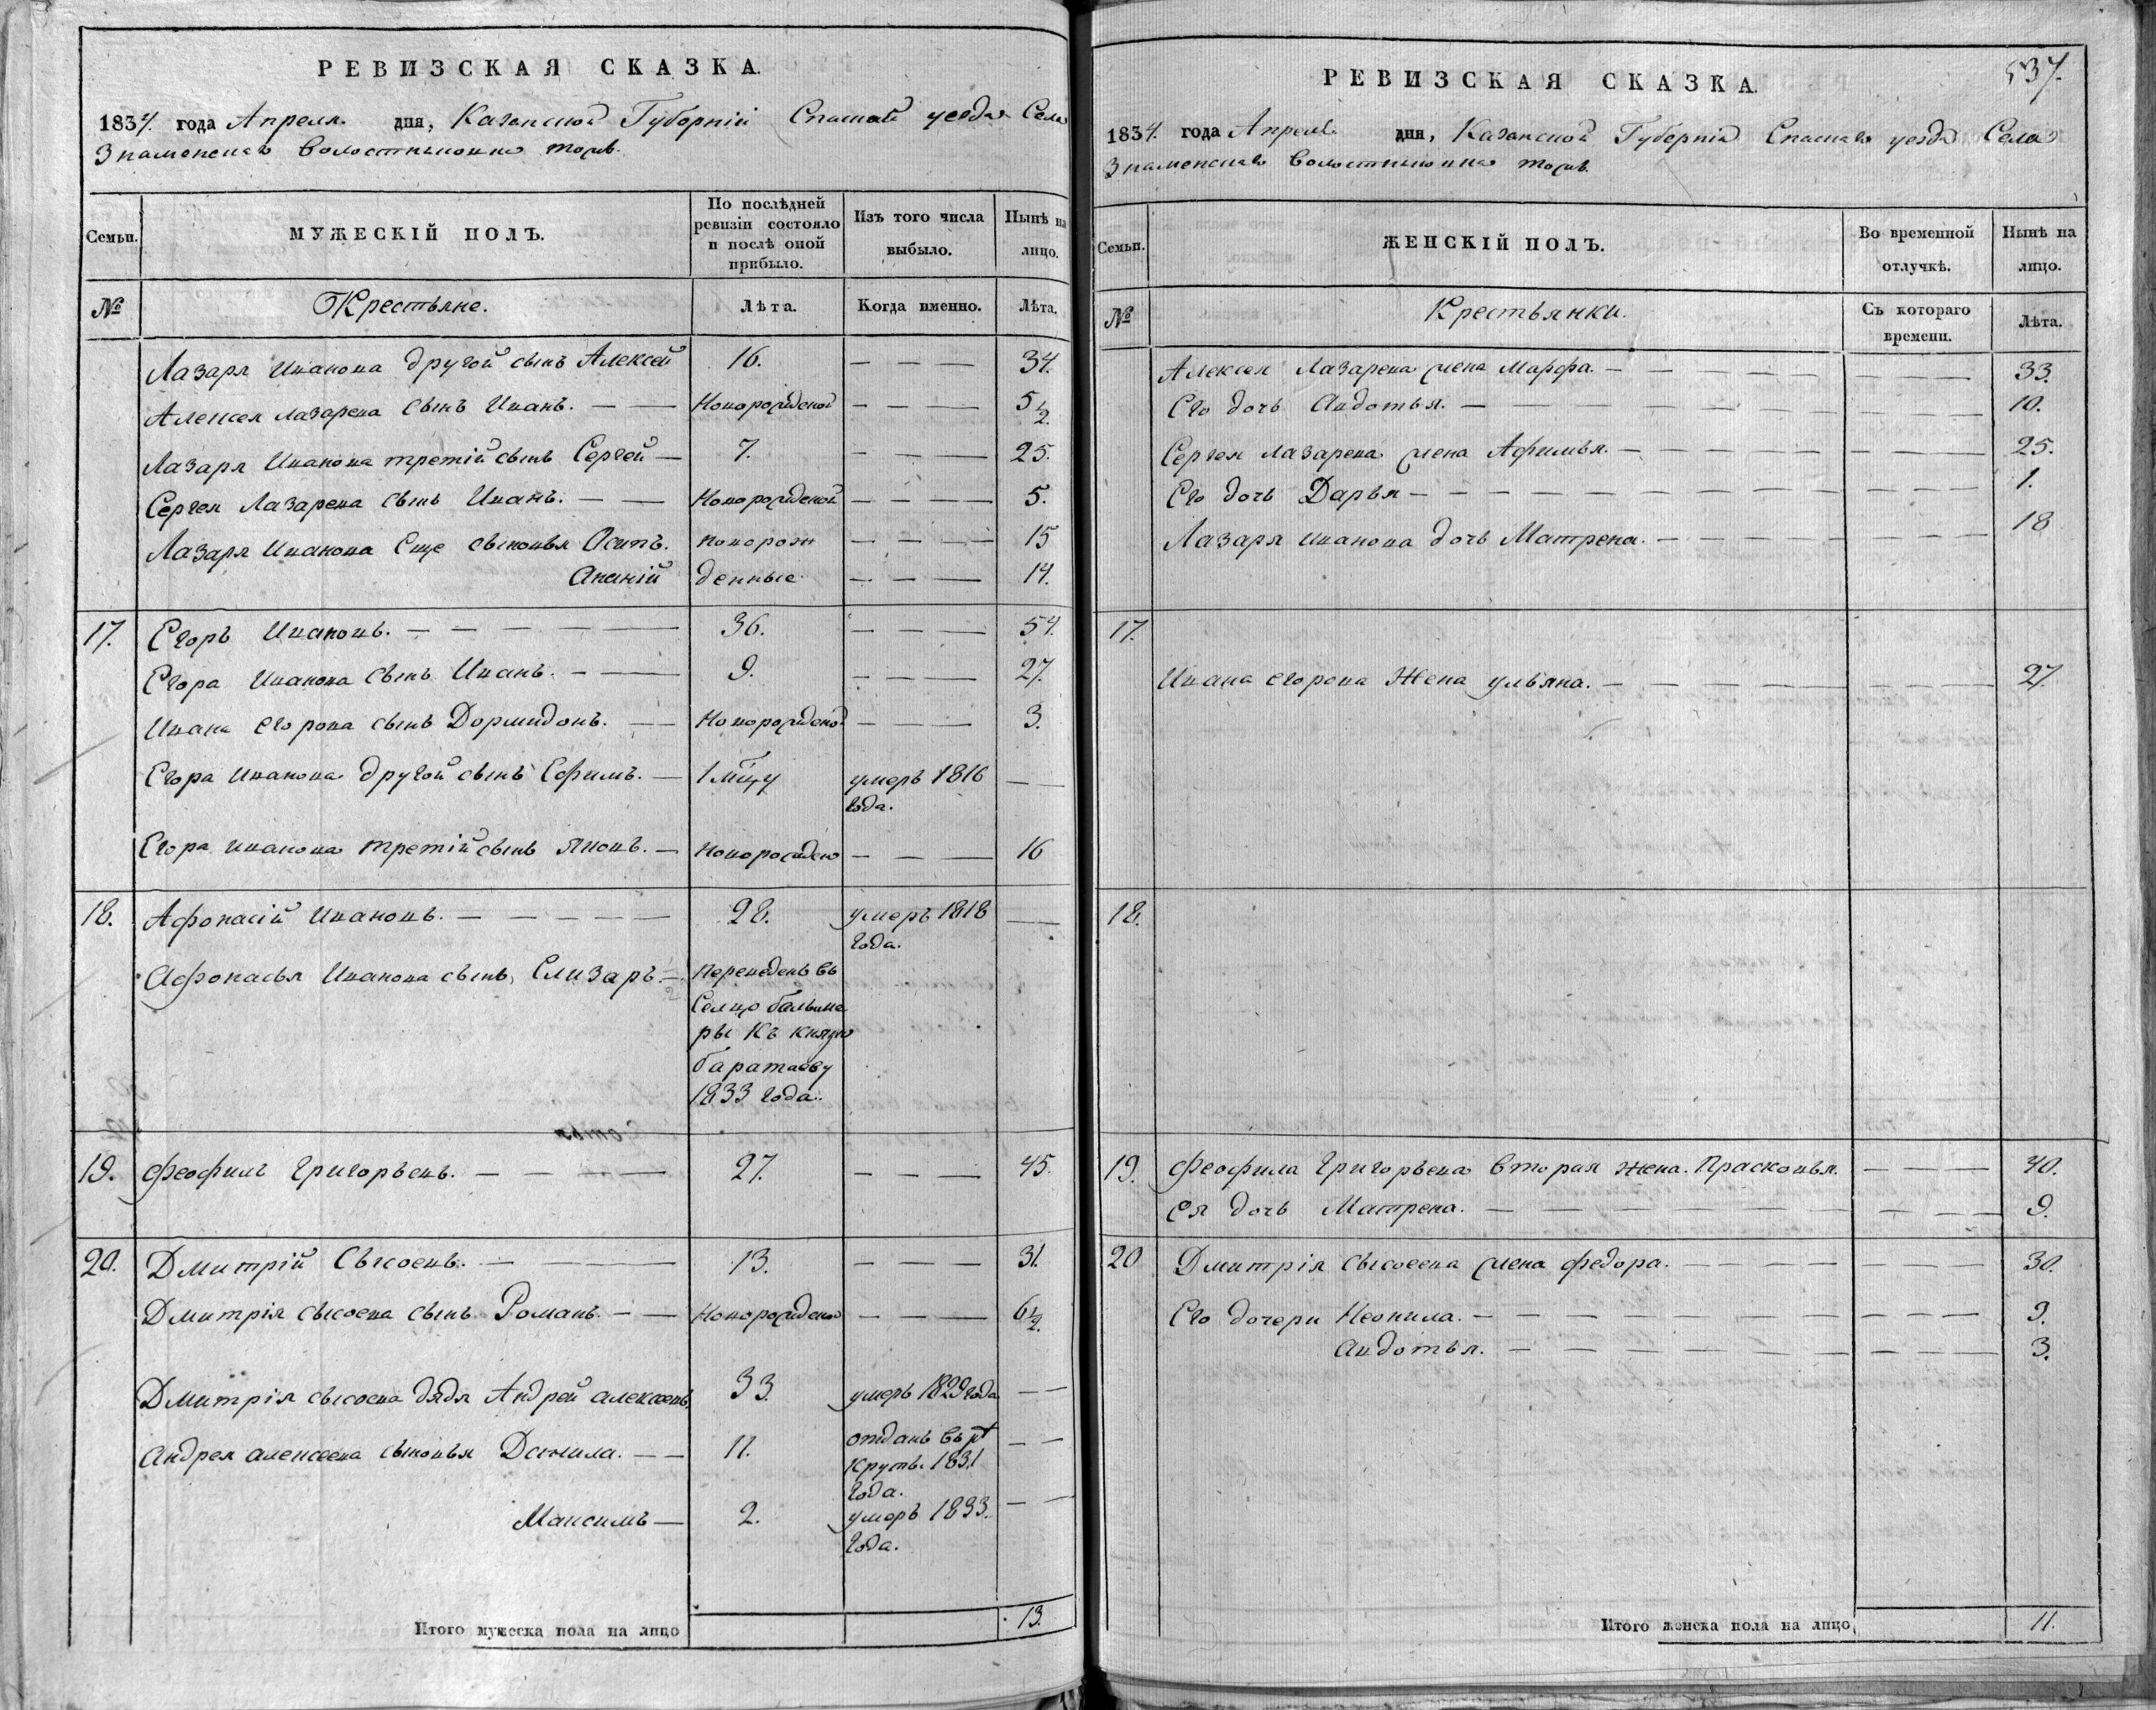 РЕВИЗСКАЯ СКАЗКА.
1834. года Апреля дня, Казанской Губерніи Спаскаго уезда Села
Знаменскаго Волостниковка тожъ.
Семьи.
МУЖЕСКІЙ ПОЛЪ.
По послѣдней ревизіи состояло и послѣ оной прибыло.
Изъ того числа выбыло.
Нынѣ на лицо.
№
Крестьяне.
Лѣта.
Когда именно.
Лѣта.
Лазаря Иванова другой сынъ Алексей 16. — — — 34.
Алексея Лазарева сынъ Иванъ. — — Новорожденой — — — 5 1/2.
Лазаря Иванова третій сынъ Сергей — 7. — — — 25.
Сергея Лазарева сынъ Иванъ. — — Новорожденой — — — 5.
Лазаря Иванова Еще сыновья Осипъ. новорож — — — 15
Ананій денные — — — 14.
17. Егоръ Ивановъ. — — — — — 36. — — — 54.
Егора Иванова сынъ Иванъ. — — 9. — — — 27.
Ивана Егорова сынъ Дормидонъ. — — Новорожденой — — — 3.
Егора Иванова другой сынъ Ефимъ. — 1 мцу умеръ 1816 —
года.
Егора Иванова третій сынъ Яковъ. — Новорожден — — — 16
18. Афонасій Ивановъ. — — — — — 28. умеръ 1818 —
года.
Афонасья Иванова сынъ, Елизаръ. — Переведенъ въ
Селцо балыме
ры Къ князю
баратаеву
1833 года.
19. Феофилъ Григорьевъ. — — — — 27. — — — 45.
20. Дмитрій Сысоевъ. — — — 13. — — — 31.
Дмитрія сысоева сынъ Романъ. — — Новорожденой — — — 6 1/2.
Дмитрія сысоева дядя Андрей алексеевъ 33. умеръ 1829 года — —
Андрея алексеева сыновья Данила. — — 11. отданъ въ рѣ — —
круты. 1831
года.
Максимъ — 2. умеръ 1833. — —
года.
Итого мужеска пола на лицо 13.
537.
РЕВИЗСКАЯ СКАЗКА.
1834. года Апреля дня, Казанской Губерніи Спаскаго уезда Села
Знаменскаго Волостниковка тожъ.
Семьи.
ЖЕНСКІЙ ПОЛЪ.
Во временной отлучкѣ.
Нынѣ на лицо.
№
Крестьянки.
Съ котораго времени.
Лѣта.
Алексея Лазарева жена Марфа. — — — — — — — — 33.
Его дочь Авдотья. — — — — — — — — 10.
Сергея Лазарева жена Афимья. — — — — — — — — 25.
Его дочь Дарья — — — — — — — — 1.
Лазаря Иванова дочь Матрена. — — — — — — — — 18
17.
Ивана егорова Жена ульяна. — — — — — — — — 27.
18.
19. Феофила Григорьева вторая жена. Прасковья. — — — 40.
Ея дочь Матрена. — — — — — — — — 9.
20 Дмитрія сысоева жена федора. — — — — — — — 30.
Его дочери Неонила. — — — — — — — — 9.
Авдотья. — — — — — — — — 3.
Итого женска пола на лицо, 11.